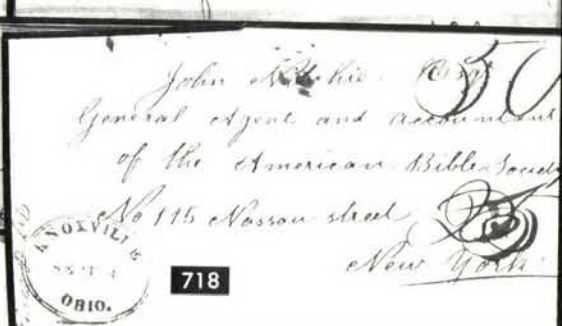 John Nitchie Esqr 50
General Agent and Accountant
of the American Bible Society
No 115 Nassau street 25
New York
KNOXVILLE
SEPT 4
OHIO.
718